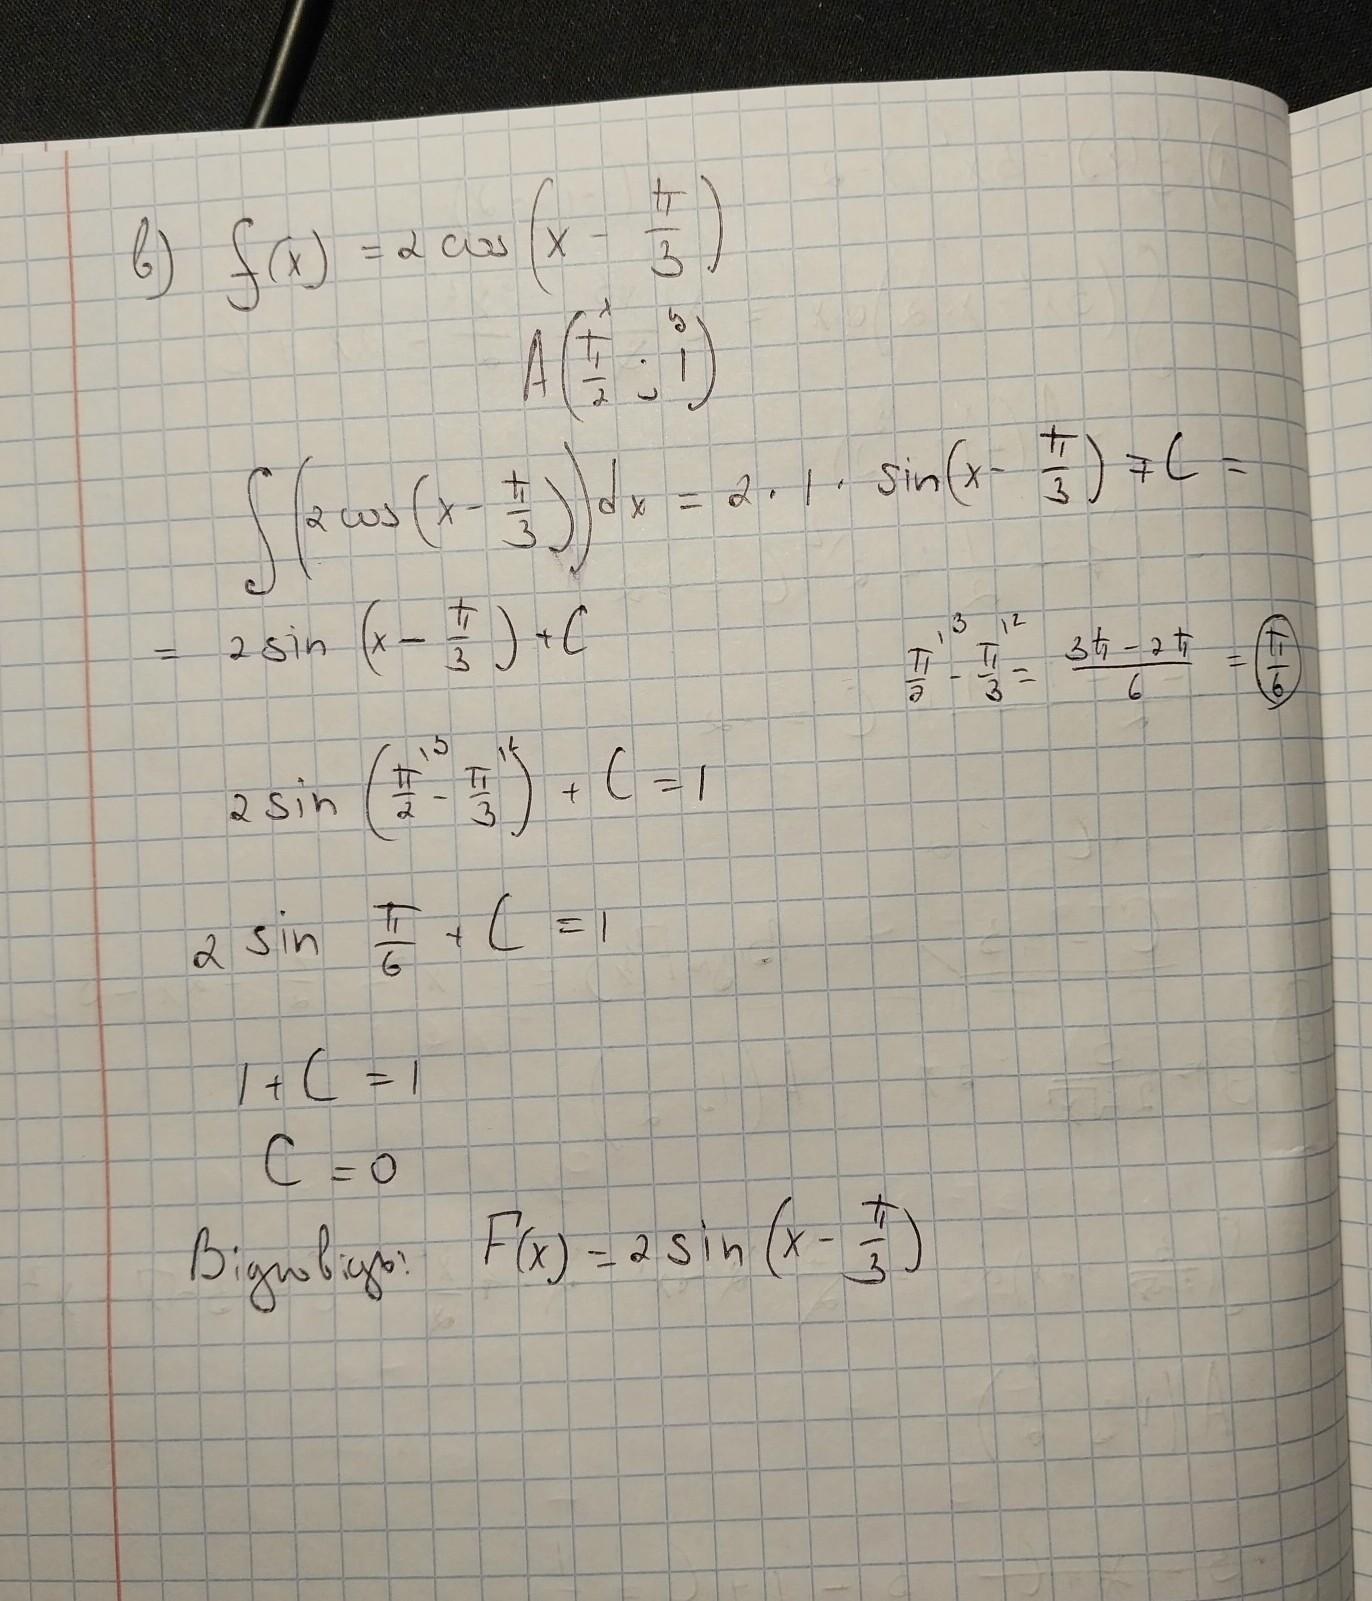 в) f(x) = 2 cos (x - π/3)
A(π/2 ; 1)
x y
∫(2 cos (x - π/3)) dx = 2 · 1 · sin(x - π/3) + C =
= 2 sin (x - π/3) + C
π/2 ^3 - π/3 ^2 = (3π - 2π)/6 = π/6
2 sin (π/2 ^3 - π/3 ^2) + C = 1
2 sin π/6 + C = 1
1 + C = 1
C = 0
Відповідь: F(x) = 2 sin (x - π/3)